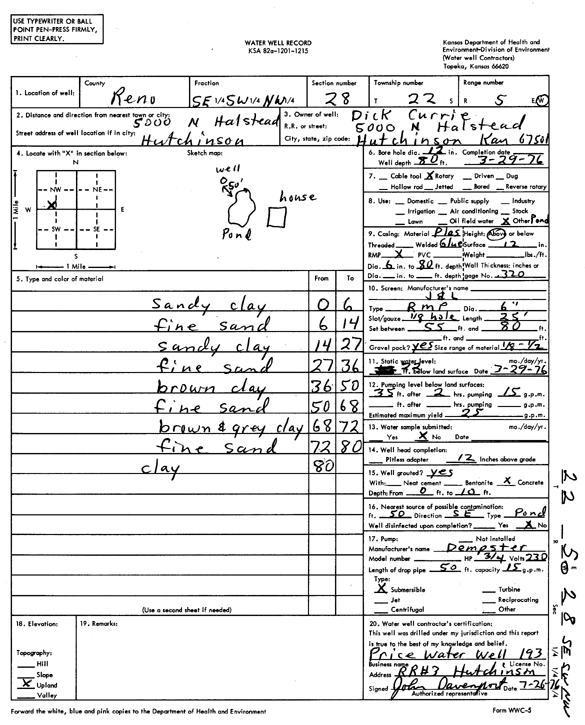 USE TYPEWRITER OR BALL
POINT PEN-PRESS FIRMLY,
PRINT CLEARLY.
WATER WELL RECORD
KSA 82a-1201-1215
Kansas Department of Health and
Environment-Division of Environment
(Water well Contractors)
Topeka, Kansas 66620
1. Location of well:
County
Reno
Fraction
SE 1/4 SW 1/4 NW 1/4
Section number
28
Township number
T 22 S
Range number
R 5 E/W
2. Distance and direction from nearest town or city:
5000 N Halstead
Street address of well location if in city:
Hutchinson
3. Owner of well: Dick Currie
R.R. or street: 5000 N Halstead
City, state, zip code: Hutchinson Kan 67501
4. Locate with "X" in section below:
Sketch map:
N
NW NE
W X E
SW SE
S
1 Mile
1 Mile
well
50'
house
Pond
6. Bore hole dia. 12 in. Completion date
Well depth 80 ft. 3-29-76
7. Cable tool X Rotary Driven Dug
Hollow rod Jetted Bored Reverse rotary
8. Use: Domestic Public supply Industry
Irrigation Air conditioning Stock
Lawn Oil field water X Other Pond
9. Casing: Material Plas Height: Above or below
Threaded Welded Glue Surface 12 in.
RMP X PVC Weight lbs./ft.
Dia. 6 in. to 80 ft. depth Wall Thickness: inches or
Dia. in. to ft. depth gage No. .320
5. Type and color of material
From To
sandy clay 0 6
fine sand 6 14
sandy clay 14 27
fine sand 27 36
brown clay 36 50
fine sand 50 68
brown & grey clay 68 72
fine sand 72 80
clay 80
(Use a second sheet if needed)
10. Screen: Manufacturer's name
J & L
Type RMP Dia. 6"
Slot/gauze 1/8 hole Length 25'
Set between 55 ft. and 80 ft.
ft. and ft.
Gravel pack? yes Size range of material 1/8-1/2
11. Static water level: mo./day/yr.
ft. below land surface Date 3-29-76
12. Pumping level below land surfaces:
35 ft. after 2 hrs. pumping 15 g.p.m.
ft. after hrs. pumping g.p.m.
Estimated maximum yield 25 g.p.m.
13. Water sample submitted: mo./day/yr.
Yes X No Date
14. Well head completion:
Pitless adapter 12 Inches above grade
15. Well grouted? yes
With: Neat cement Bentonite X Concrete
Depth: From 0 ft. to 10 ft.
16. Nearest source of possible contamination:
ft. 50 Direction SE Type Pond
Well disinfected upon completion? Yes X No
17. Pump: Not installed
Manufacturer's name Dempster
Model number HP 3/4 Volts 230
Length of drop pipe 50 ft. capacity 15 g.p.m.
Type:
X Submersible Turbine
Jet Reciprocating
Centrifugal Other
18. Elevation:
Topography:
Hill
Slope
X Upland
Valley
19. Remarks:
20. Water well contractor's certification:
This well was drilled under my jurisdiction and this report
is true to the best of my knowledge and belief.
Price Water Well 193
Business name License No.
Address RR#3 Hutchinson
Signed John Davenport Date 7-26-76
Authorized representative
Forward the white, blue and pink copies to the Department of Health and Environment
Form WWC-5
T 22 - R 5 E/W Sec 28 SE 1/4 SW 1/4 NW 1/4